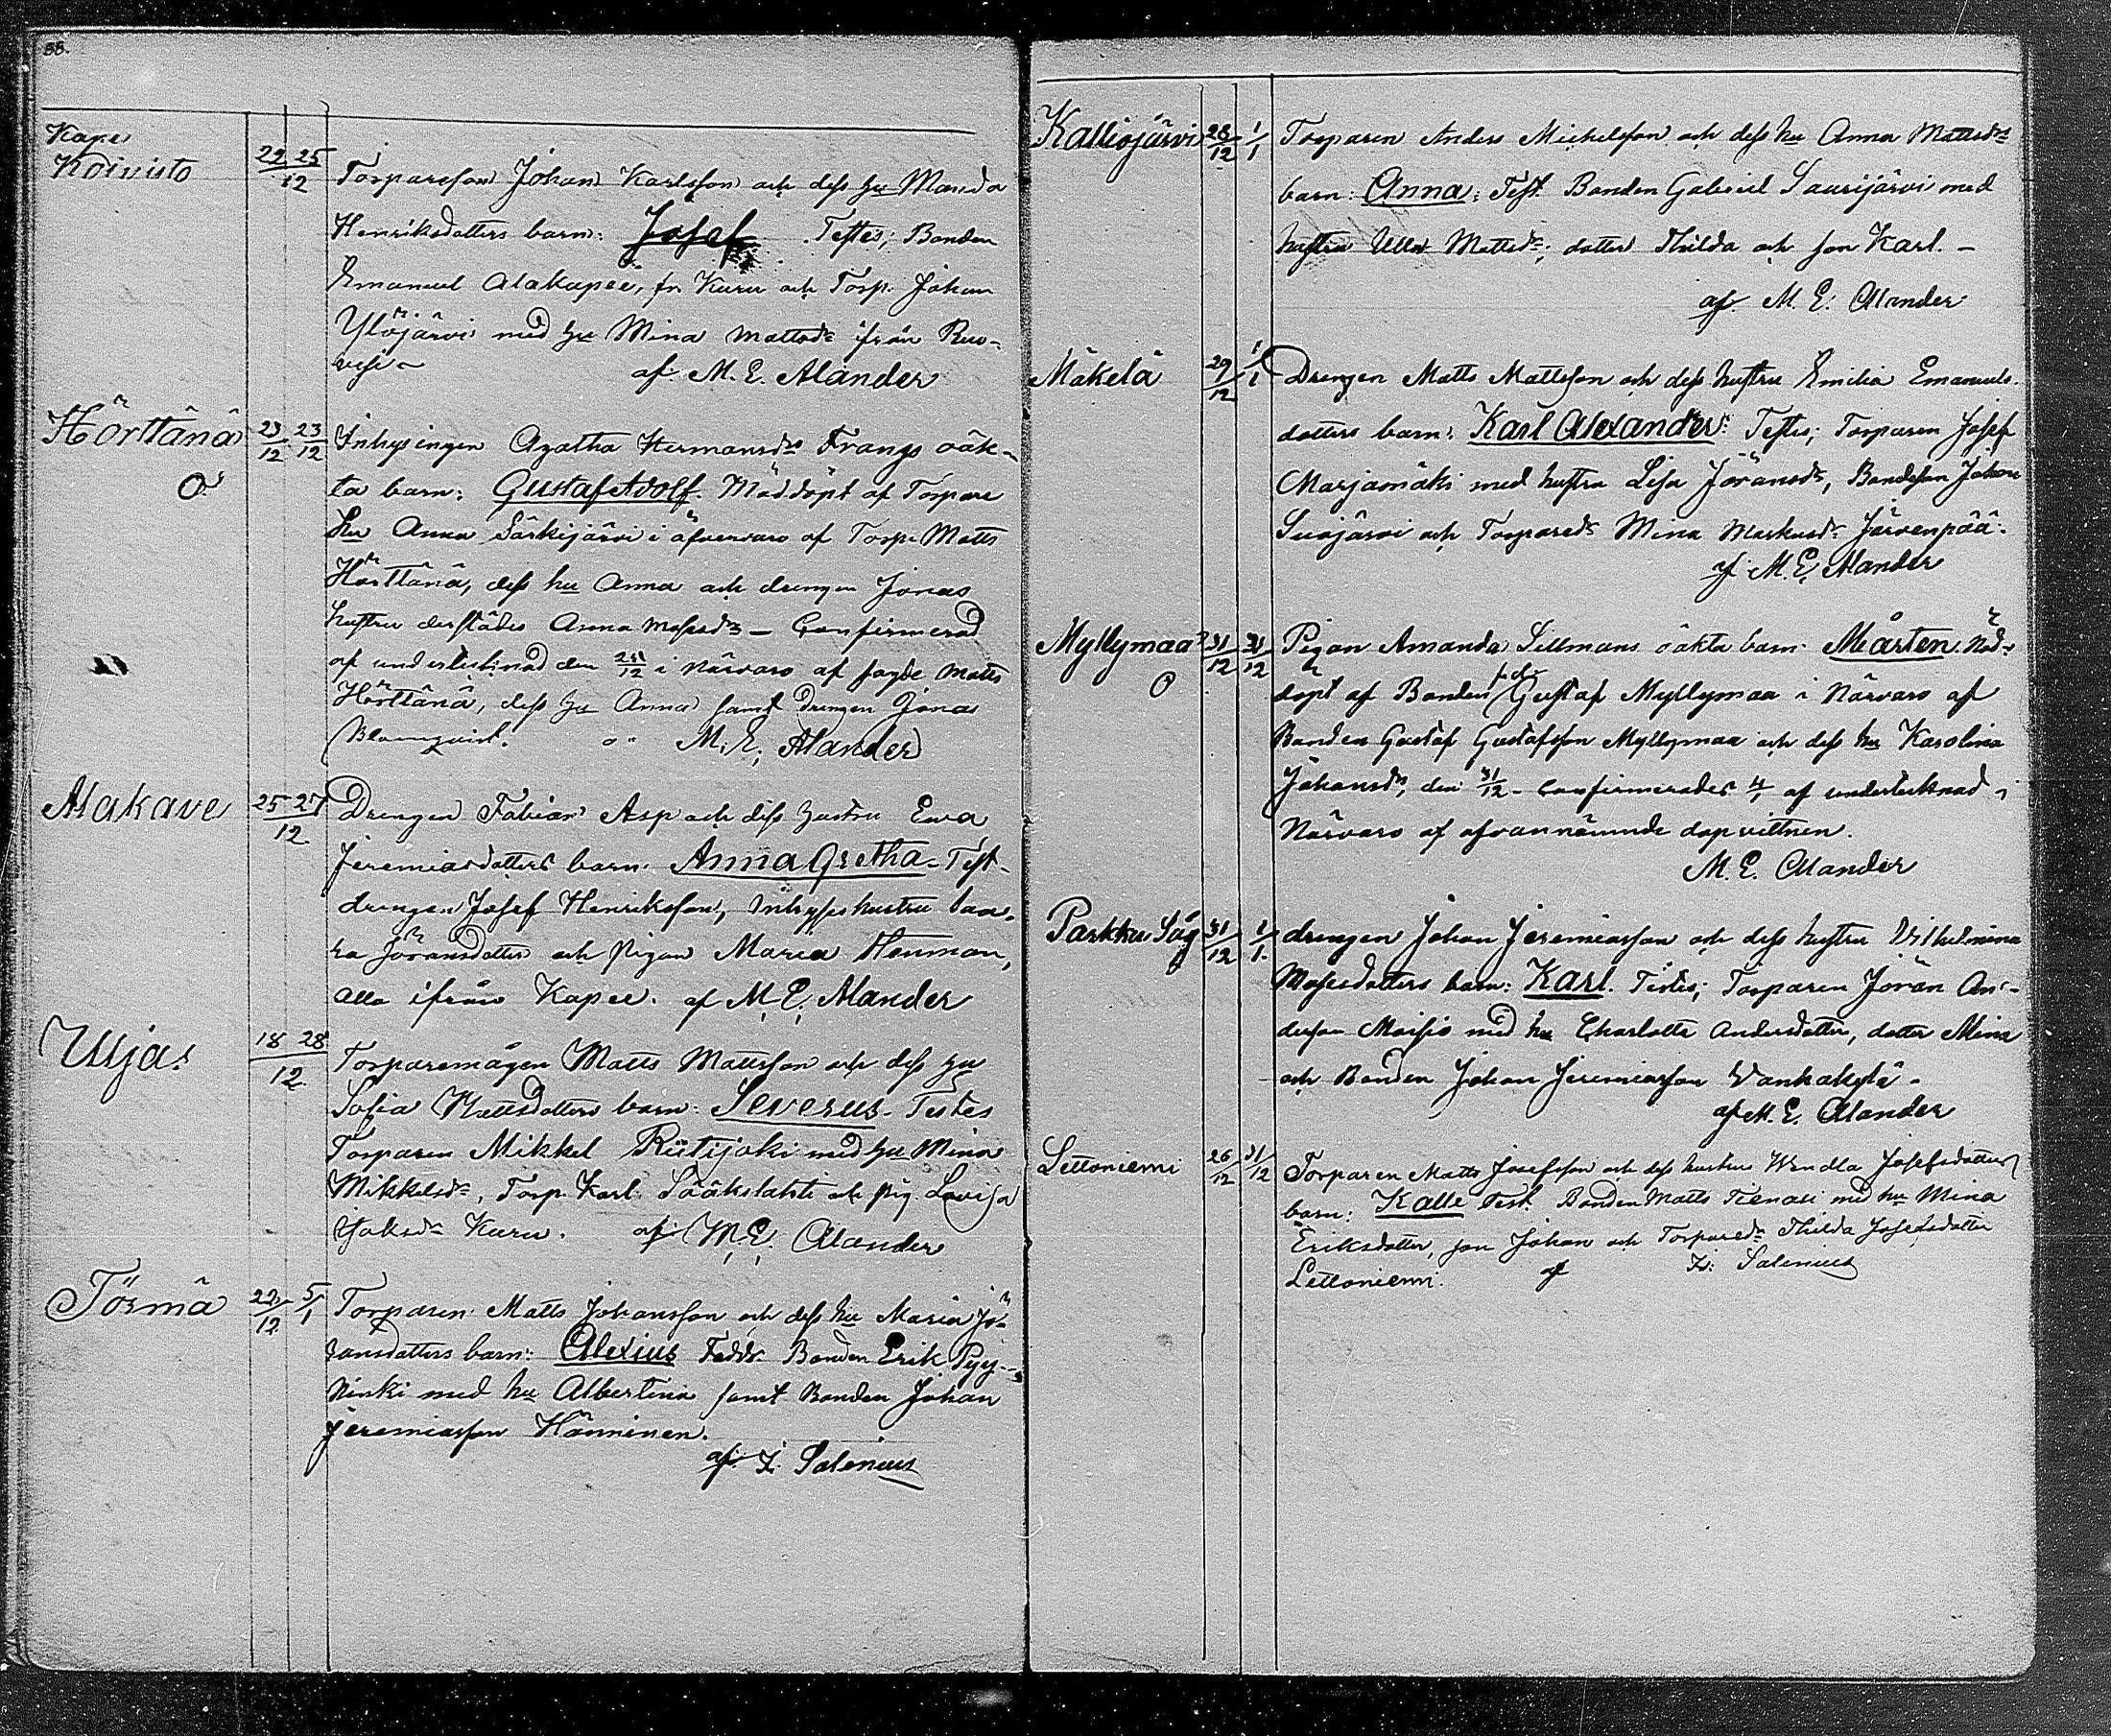 88.
Kapee
Koivisto 22 25/12 Torparesson Johan Karlsson och dess hu Manda
Henriksdotters barn: Josef. Testes; Bonden
Emanuel Alakapee, fr. Kuru och Torp. Johan
Ylöjärvi med hu Mina Mattsdr ifrån Ruo-
vesi – af M. E. Alander
Hörttänä 23/12 23/12 Inhysingen Agatha Hermansdr Frangs oäk-
O ta barn: Gustaf Adolf. Nöddöpt af Torpare
hu Anna Särkijärvi i öfvervaro af Torp. Matts
Hörttänä, dess hu Anna och drengen Jonas
hustru derstädes Anna Mosesdr – Confirmerad
af undertecknad den i närvaro af sagde Matts
Hörttänä, dess hu Anna samt drengen Jonas
Blomqvist. M. E. Alander
Alakave 25 27/12 Drengen Fabian Asp och dess hustru Ewa
Jeremiasdotters barn. Anna Gretha. Test.
drengen Josef Henriksson, Inhyseshustru Saa-
ra Jöransdotter och Pigan Maria Henman,
alla ifrån Kapee. af M. E. Alander
Uljas 18 28/12 Torparemågen Matts Mattsson och dess hu
Sofia Mattsdotters barn: Severus. Testes
Torparen Mikkel Riitijoki med hu Mina
Mikkelsdr, Torp. Karl Sääkslahti och pig. Lovisa
Jaksdr Kuru. af M. E. Alander
Törmä 22/12 5/1 Torparen Matts Johansson och dess hu Maria Jö-
ransdotters barn: Alexius Faddr. Bonden Erik Pyy-
ninki med hu Albertina samt Bonden Johan
Jeremiasson Hänninen.
af Z. Salenius
Kalliojärvi 28/12 1/1 Torparen Anders Michelsson och dess hu Anna Mattsdr
barn: Anna; Test. Bonden Gabriel Saarijärvi med
hustru Ulla Mattsdr; dotter Thilda och son Karl. –
af. M. E. Alander
Mäkelä 29/12 1/1 Drengen Matts Mattsson och dess hustru Emilia Emanuels-
dotters barn: Karl Alexander: Testes; Torparen Josef
Marjamäki med hustru Lisa Jöransdr, Bondeson Johan
Suojärvi och Torparedr Mina Markusdr Järvenpää.
af M. E. Alander
Myllymaa 31/12 31/12 Pigan Amanda Sillmans oäkta barn: Mårten. Nöd-
O döpt af Bonden f.d. Gustaf Myllymaa i Närvaro af
Bonden Gustaf Gustafsson Myllymaa och dess hu Karolina
Johansdr, den 31/12 – Confirmerades af undertecknad i
Närvaro af ofvannämnde dopvittnen.
M. E. Alander
Parkku Såg 31/12 1/1 drengen Johan Jeremiasson och dess hustru Vilhelmina
Mosesdotters barn: Karl. Testes; Torparen Jöran An-
dersson Moisio med hu Charlotta Andersdotter, dotter Mina
och Bonden Johan Jeremiasson Vanhakylä.
af M. E. Alander
Lettoniemi 26/12 31/12 Torparen Matts Josefsson och dess hustru Wendla Josefsdotters
barn: Kalle Test. Bonden Matts Tienari med hu Mina
Eriksdotter, son Johan och Torparedr Thilda Josefsdotter
Lettoniemi. af Z. Salenius